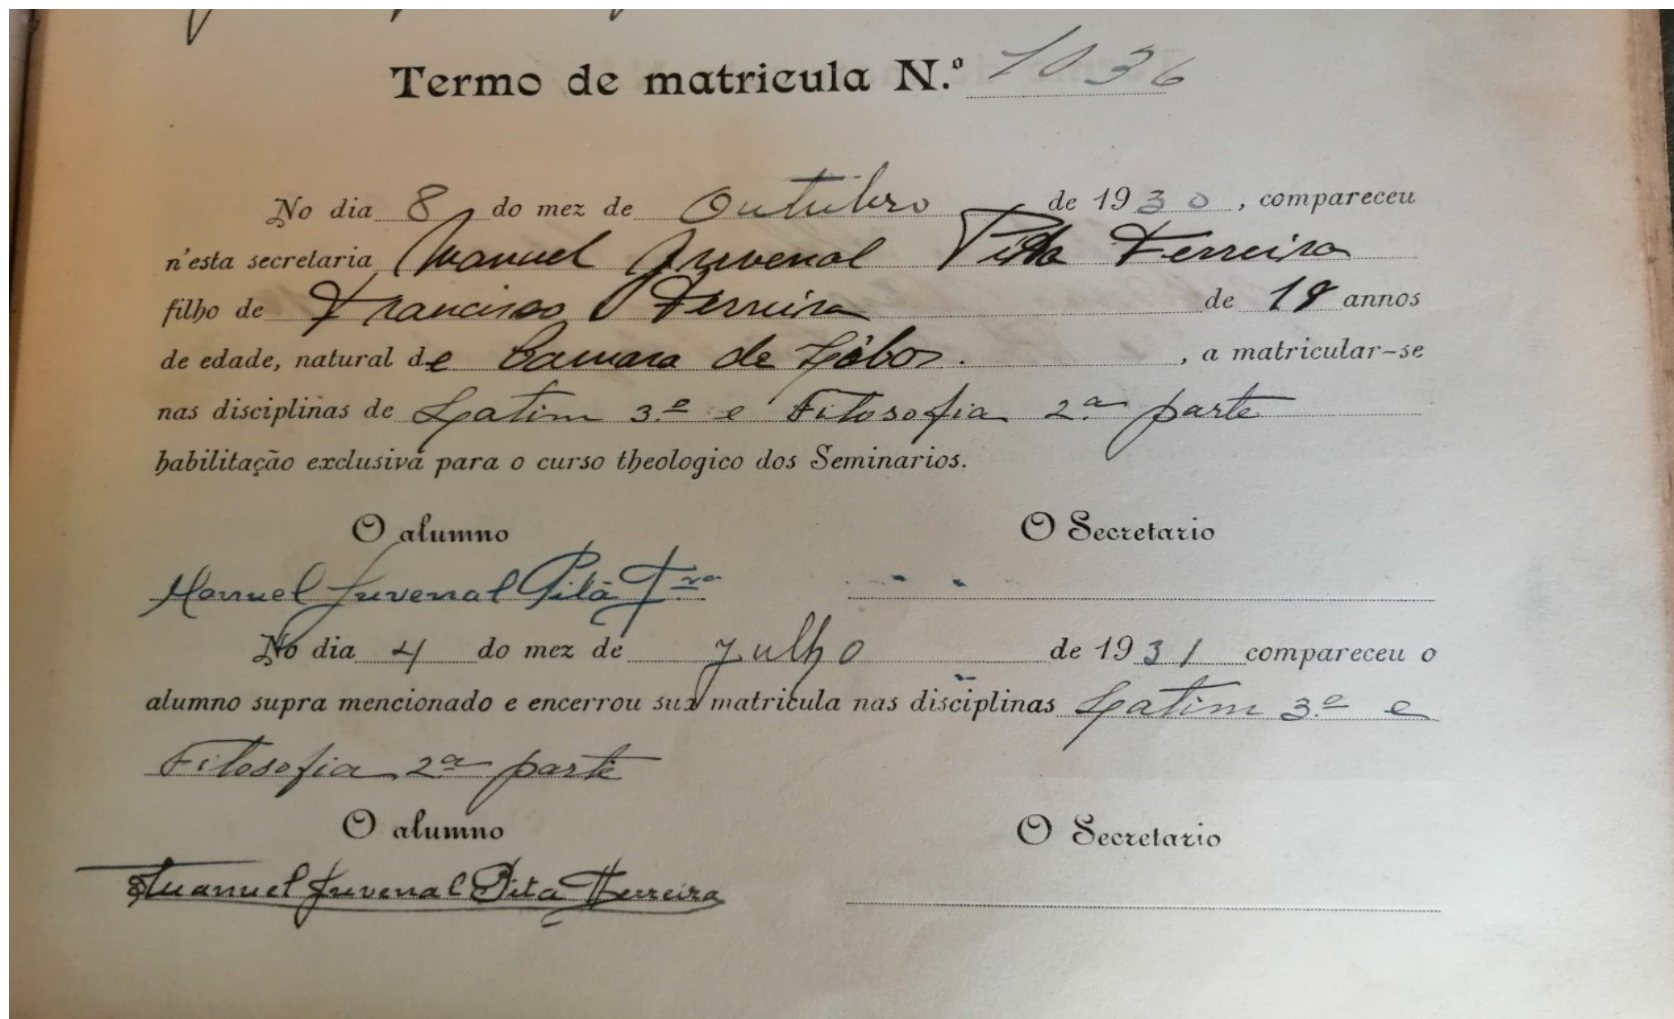 Termo de matricula N.º 1036
No dia 8 do mez de Outubro de 1930, compareceu
n'esta secretaria Manuel Juvenal Pita Ferreira
filho de Francisco Ferreira de 18 annos
de edade, natural de Camara de Lôbos. , a matricular-se
nas disciplinas de Latim 3.º e Filosofia 2ª parte
habilitação exclusiva para o curso theologico dos Seminarios.
O alumno O Secretario
Manuel Juvenal Pita Fra
No dia 4 do mez de Julho de 1931 compareceu o
alumno supra mencionado e encerrou sua matricula nas disciplinas Latim 3.º e
Filosofia 2ª parte
O alumno O Secretario
Manuel Juvenal Pita Ferreira